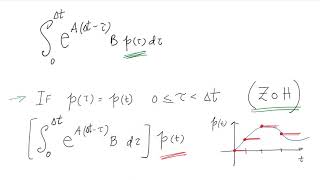 ∫₀^Δt e^{A(Δt-τ)} B p(τ) dτ
→ IF p(τ) = p(t) 0 ≤ τ < Δt (ZOH)
[∫₀^Δt e^{A(Δt-τ)} B dτ] p(t)
p(t)
t